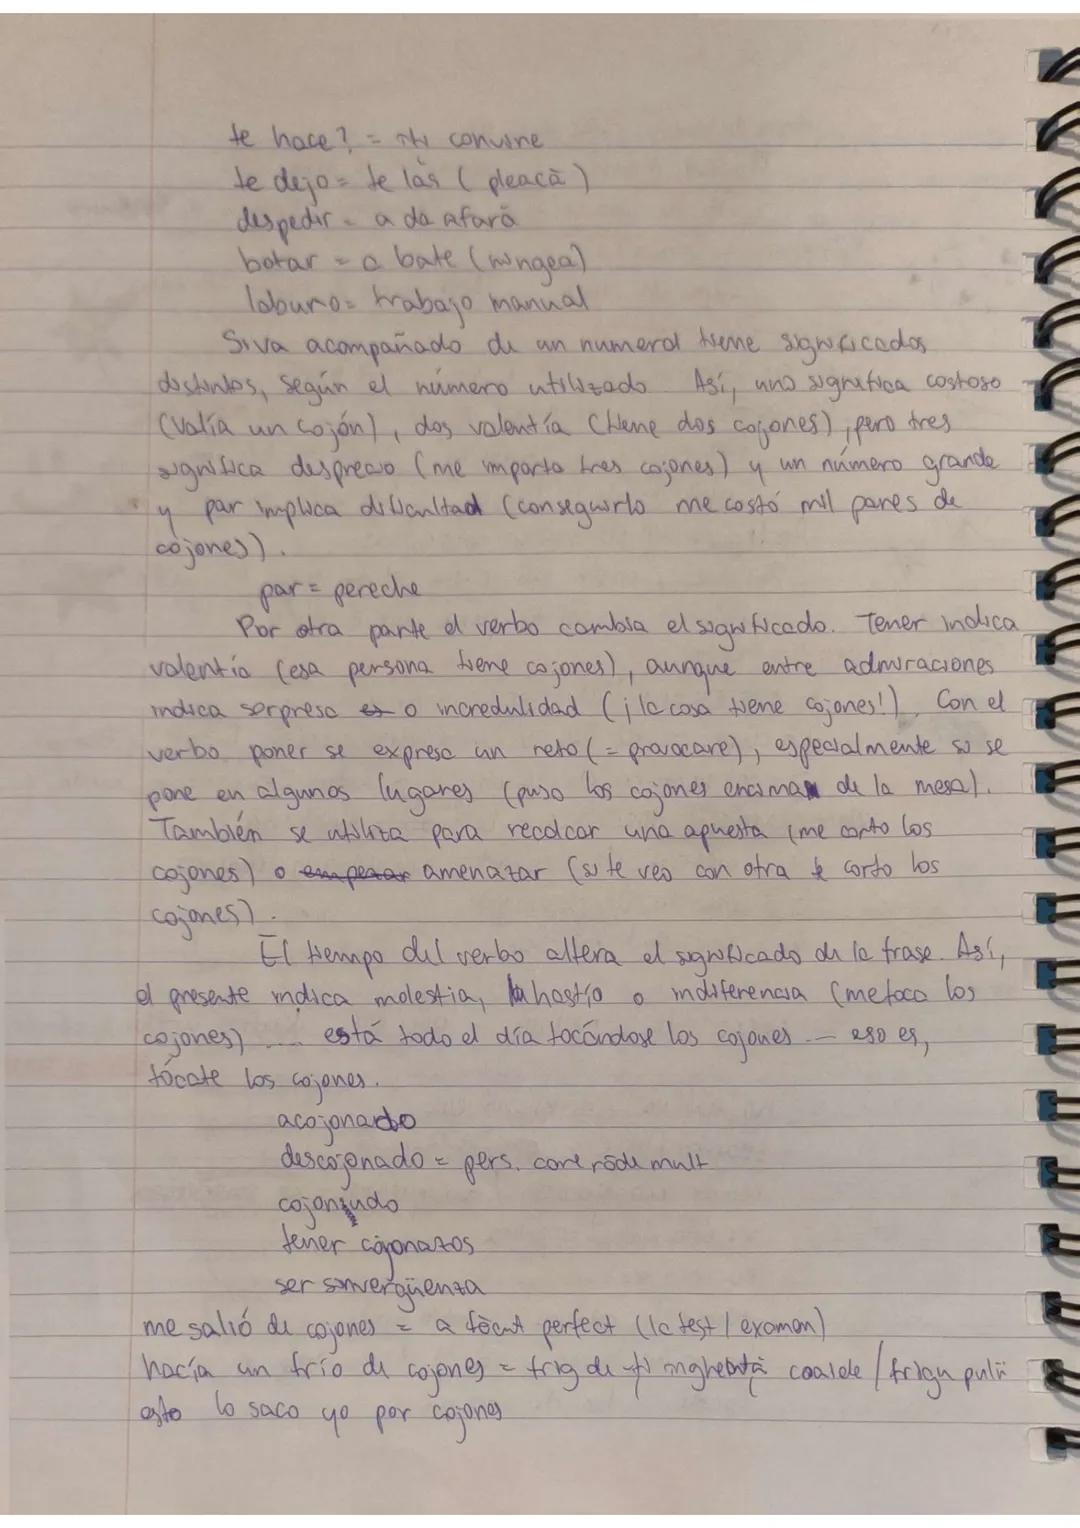 te hace? = îți convine
te dejo = te las (pleacă)
despedir = a da afară
botar = a bate (mingea)
laburo = trabajo manual
Si va acompañado de un numeral tiene significados
distintos, según el número utilizado. Así, uno significa costoso
(valía un cojón), dos valentía (tiene dos cojones), pero tres
significa desprecio (me importa tres cojones) y un número grande
y par implica dificultad (conseguirlo me costó mil pares de
cojones).
par = pereche
Por otra parte el verbo cambia el significado. Tener indica
valentía (esa persona tiene cojones), aunque entre admiraciones
indica sorpresa o incredulidad (¡la cosa tiene cojones!). Con el
verbo poner se expresa un reto (= provocare), especialmente si se
pone en algunos lugares (puso los cojones encima de la mesa).
También se utiliza para recalcar una apuesta (me corto los
cojones) o amenazar (si te veo con otra te corto los
cojones).
El tiempo del verbo altera el significado de la frase. Así,
el presente indica molestia, hastío o indiferencia (me toca los
cojones) .... está todo el día tocándose los cojones ... eso es,
tócate los cojones.
acojonado
descojonado = pers. care râde mult
cojonudo
tener cojonazos
ser sinvergüenza
me salió de cojones = a făcut perfect (la test / examen)
hacía un frío de cojones = frig de-ți îngheață coaiele / frigu pulii
esto lo saco yo por cojones